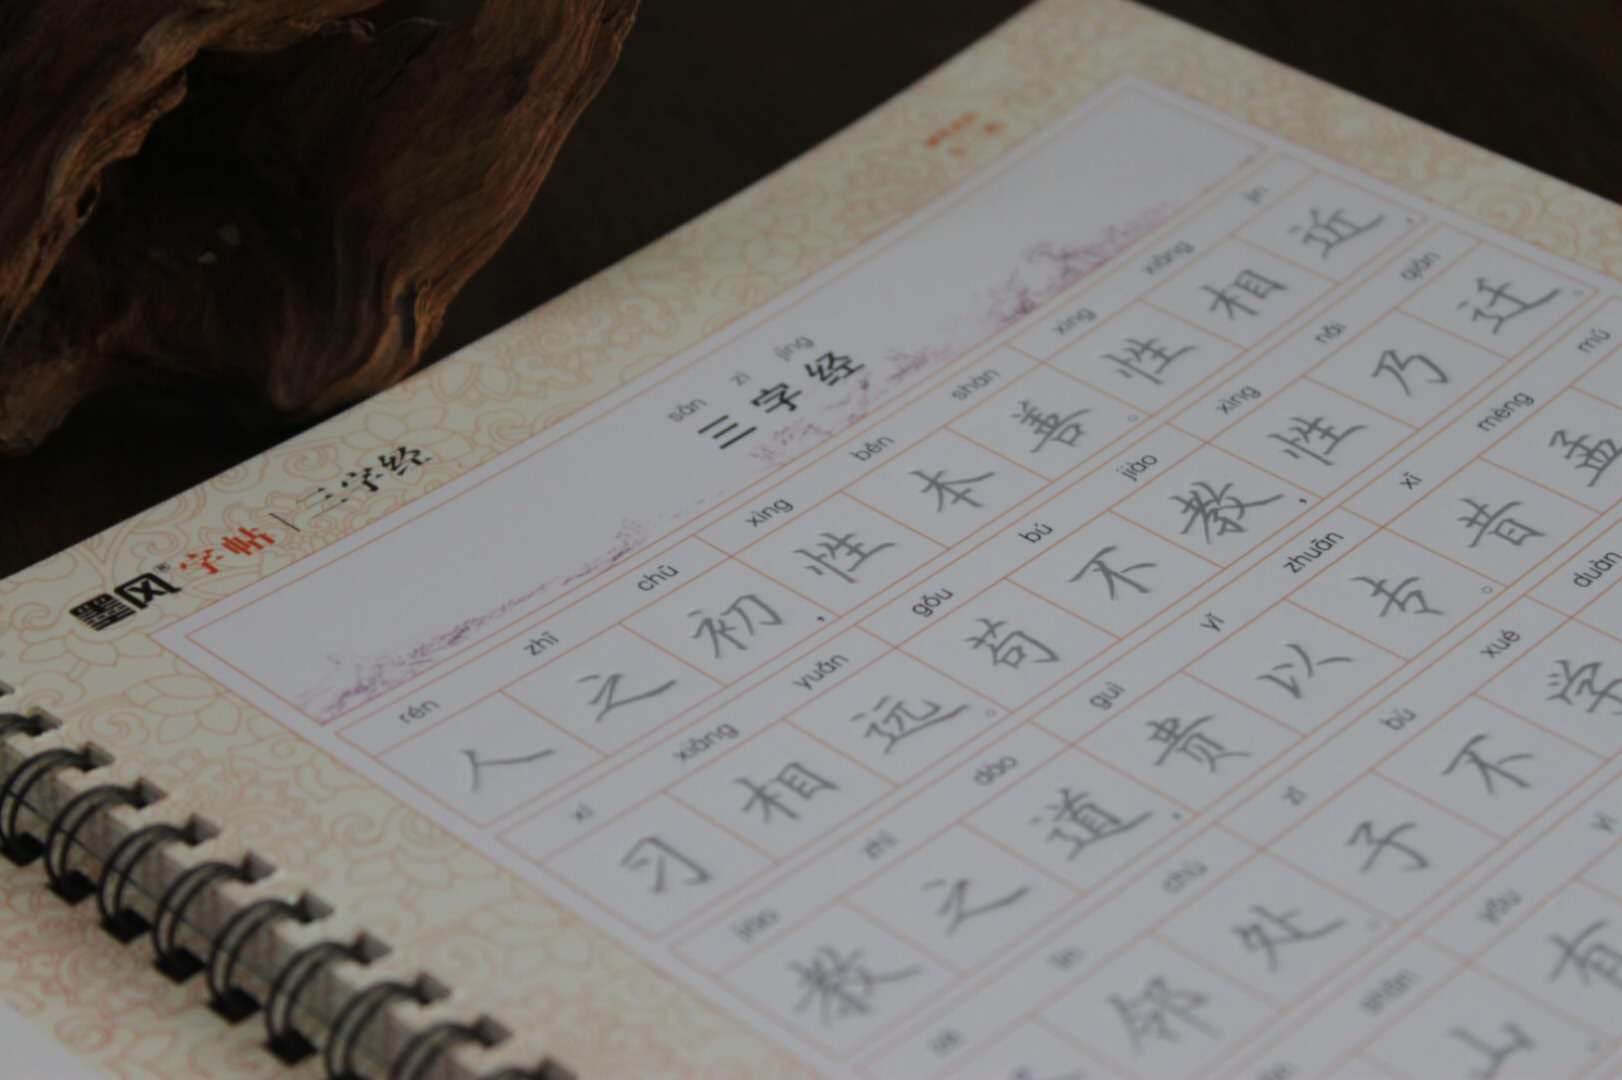 墨风字帖 | 三字经
sān zì jīng
三字经
rén zhī chū xìng běn shàn xìng xiāng jìn
人之初，性本善。性相近，
xí xiāng yuǎn gǒu bú jiào xìng nǎi qiān
习相远。苟不教，性乃迁。
jiào zhī dào guì yǐ zhuān xī mèng mǔ
教之道，贵以专。昔孟
zé lín chǔ zǐ bù xué duàn
邻处。子不学
shān yǒu yì
山。有